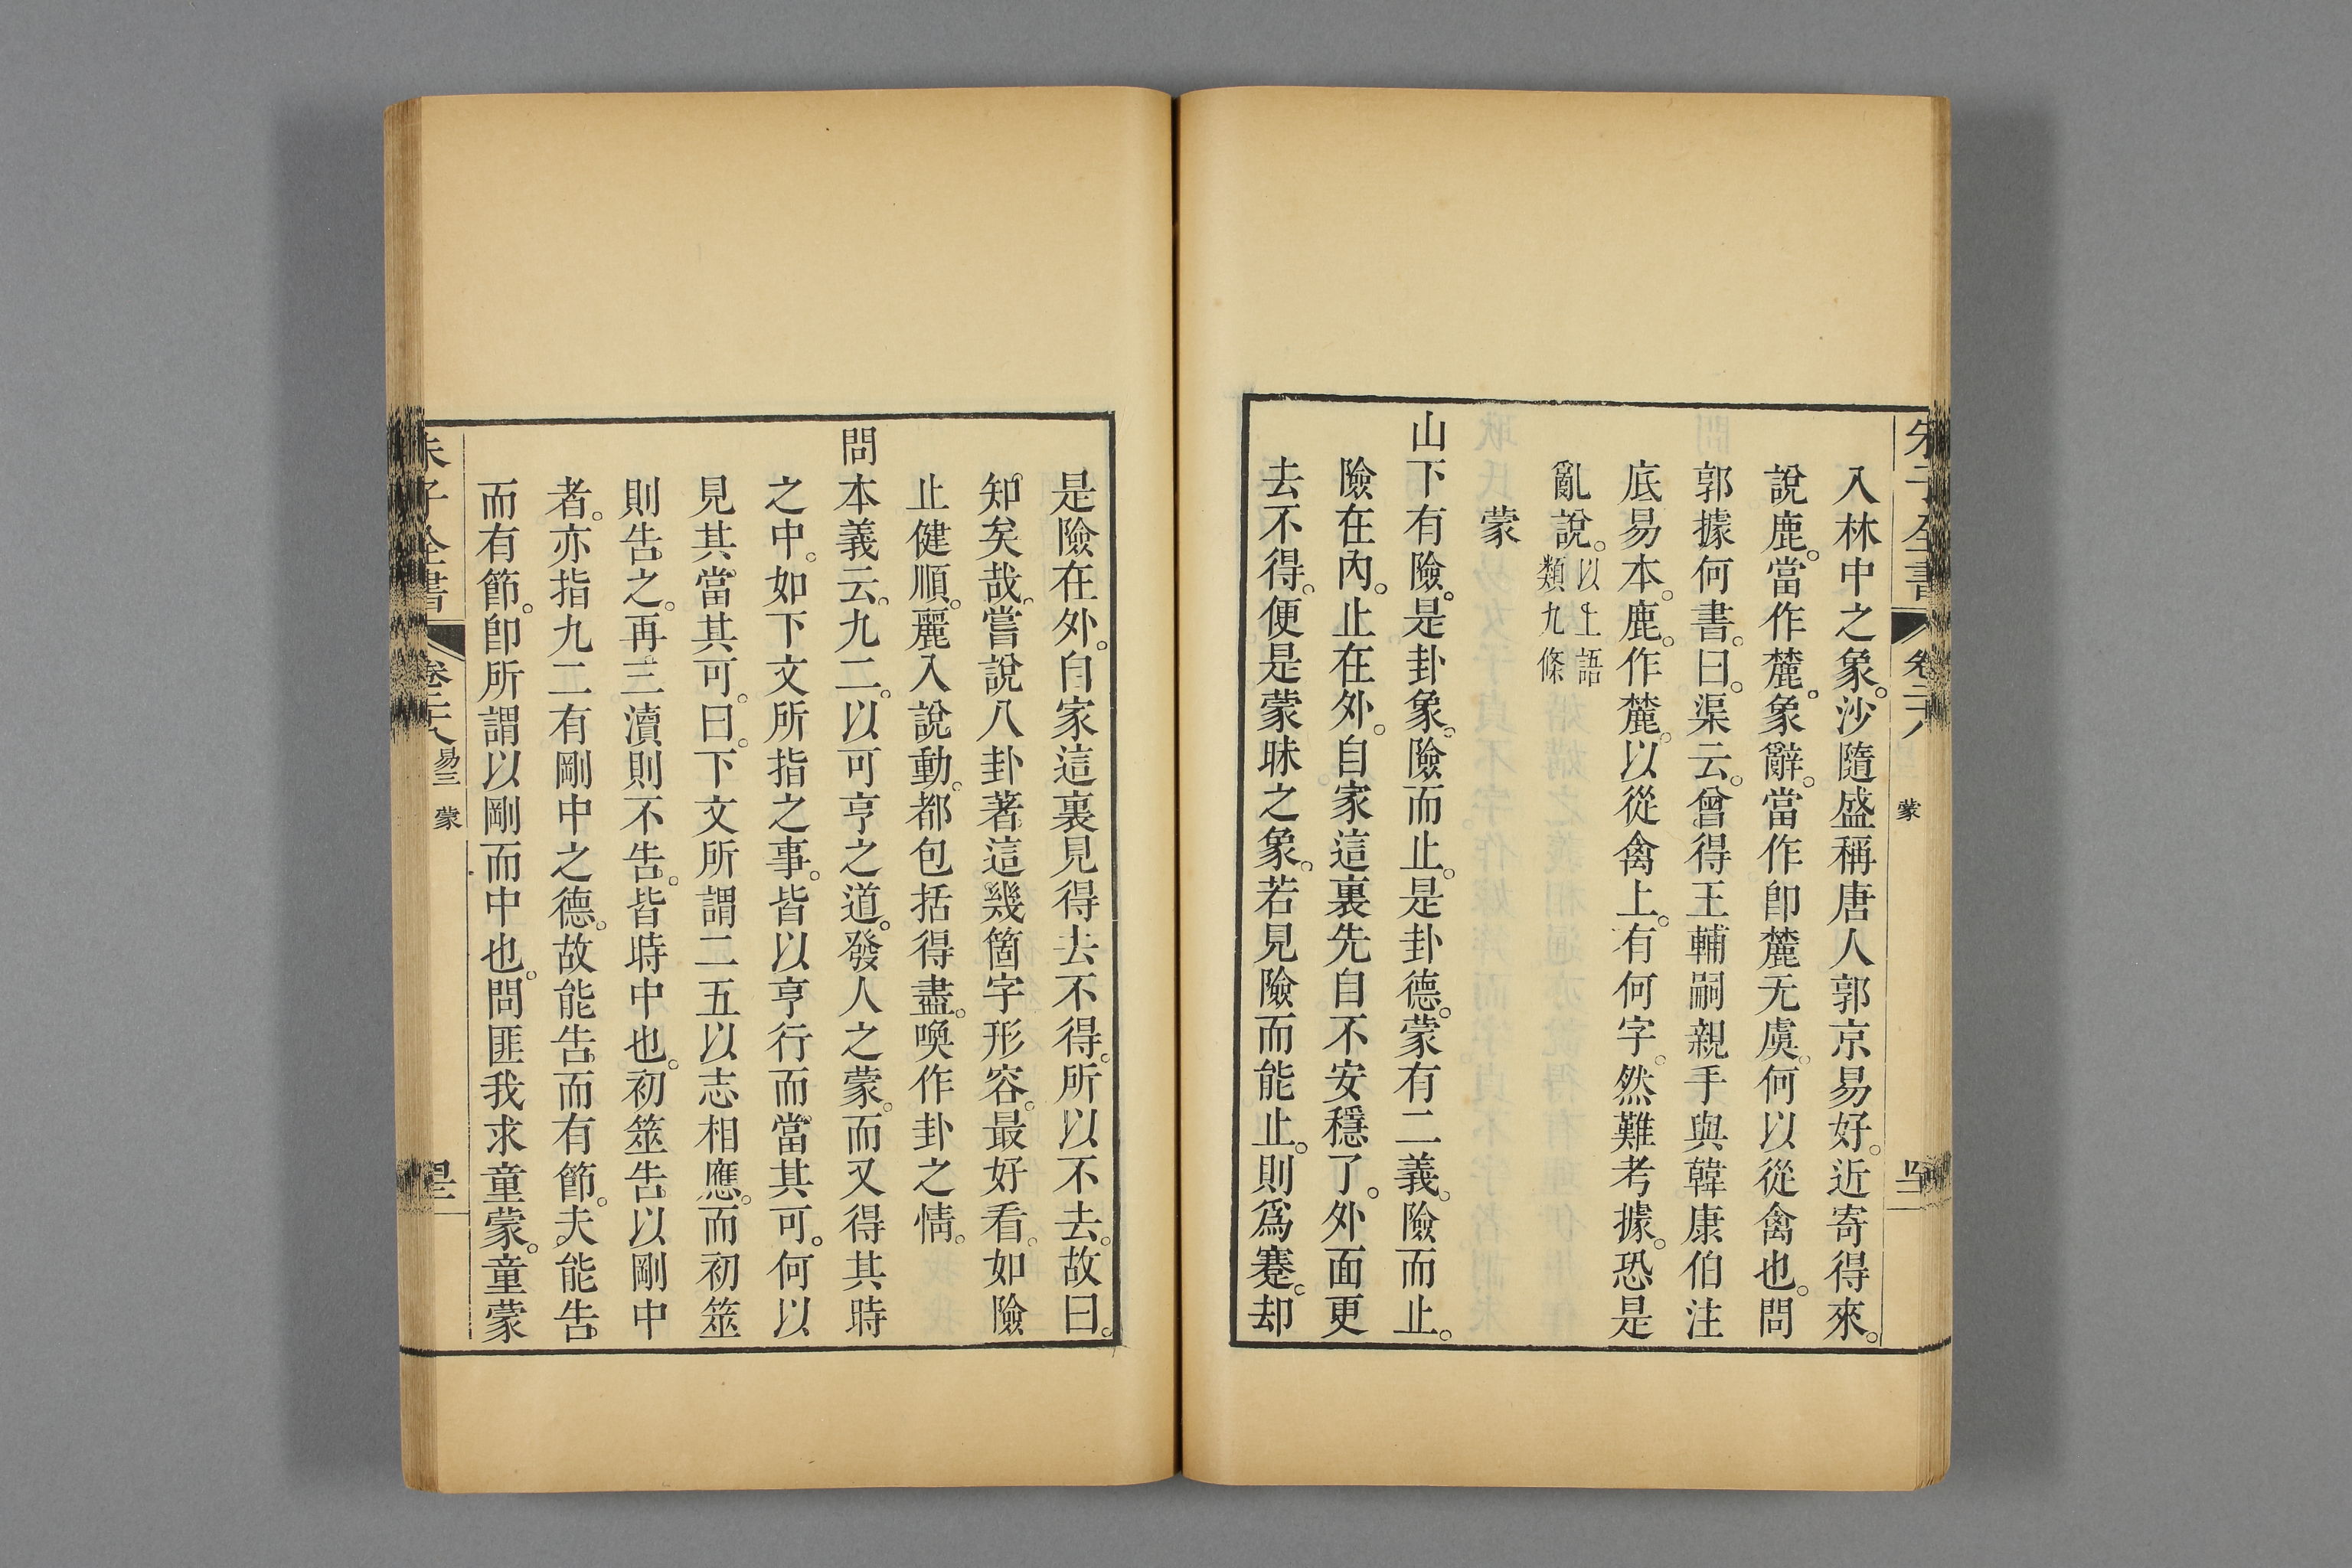 入林中之象。沙隨盛稱唐人郭京易好。近寄得來。
說鹿。當作麓。象辭。當作卽麓无虞。何以從禽也。問
郭據何書。曰。渠云。曾得王輔嗣親手與韓康伯注
底易本。鹿。作麓。以從禽上。有何字。然難考據。恐是
亂說。以上語類九條
蒙
山下有險。是卦象。險而止。是卦德。蒙有二義。險而止。
險在內。止在外。自家這裏先自不安穩了。外面更
去不得。便是蒙昧之象。若見險而能止。則爲蹇。却
是險在外。自家這裏見得去不得。所以不去。故曰。
知矣哉。嘗說八卦著這幾箇字形容。最好看。如險
止健順。麗入說動。都包括得盡。喚作卦之情。
問本義云。九二。以可亨之道。發人之蒙。而又得其時
之中。如下文所指之事。皆以亨行而當其可。何以
見其當其可。曰。下文所謂二五以志相應。而初筮
則告之。再三瀆則不告。皆時中也。初筮告以剛中
者。亦指九二有剛中之德。故能告而有節。夫能告
而有節。卽所謂以剛而中也。問匪我求童蒙。童蒙
子全書
易三 蒙
蒙